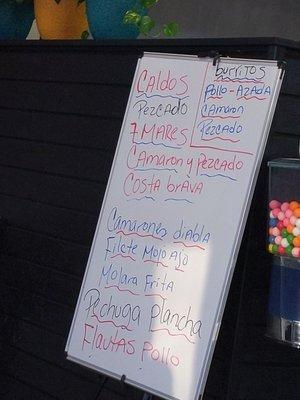 CALDOS
PEZCADO
7 MARES
CAMARON y PEZCADO
COSTA brAVA
burritos
Pollo - AZADA
CAMARON
PEZCADO
CAMARONES diAblA
Filete MOJO AJO
MOJARA FritA
PECHUGA PlANCHA
FlAUTAS Pollo